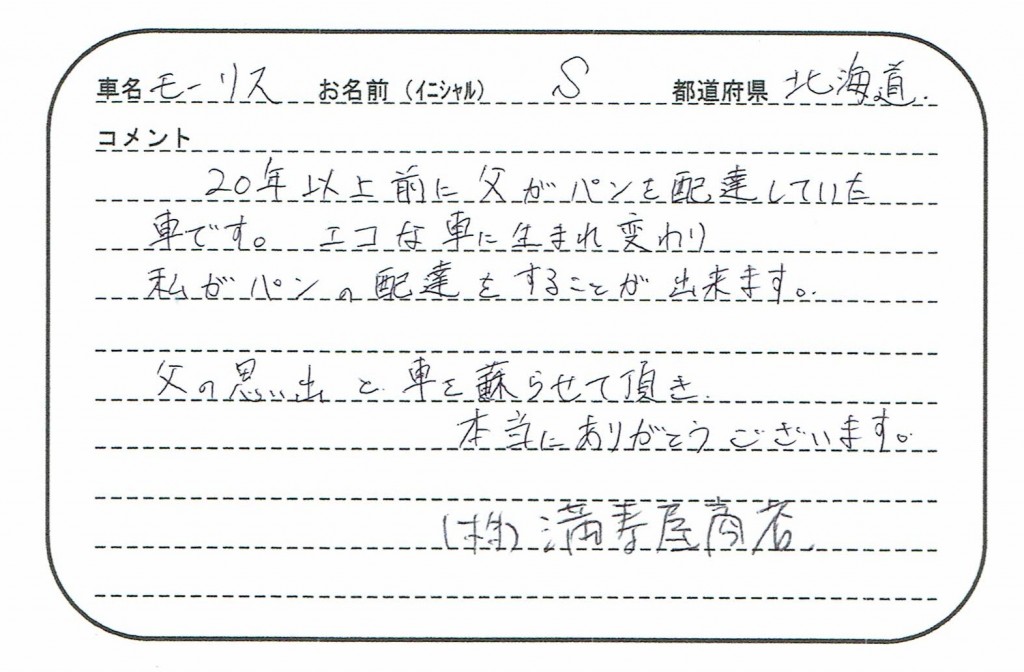 車名 モーリス お名前(イニシャル) S 都道府県 北海道.
コメント
20年以上前に父がパンを配達していた
車です。エコな車に生まれ変わり
私がパンの配達をすることが出来ます。
父の思い出と車を蘇らせて頂き
本当にありがとうございます。
(株)満寿屋商店